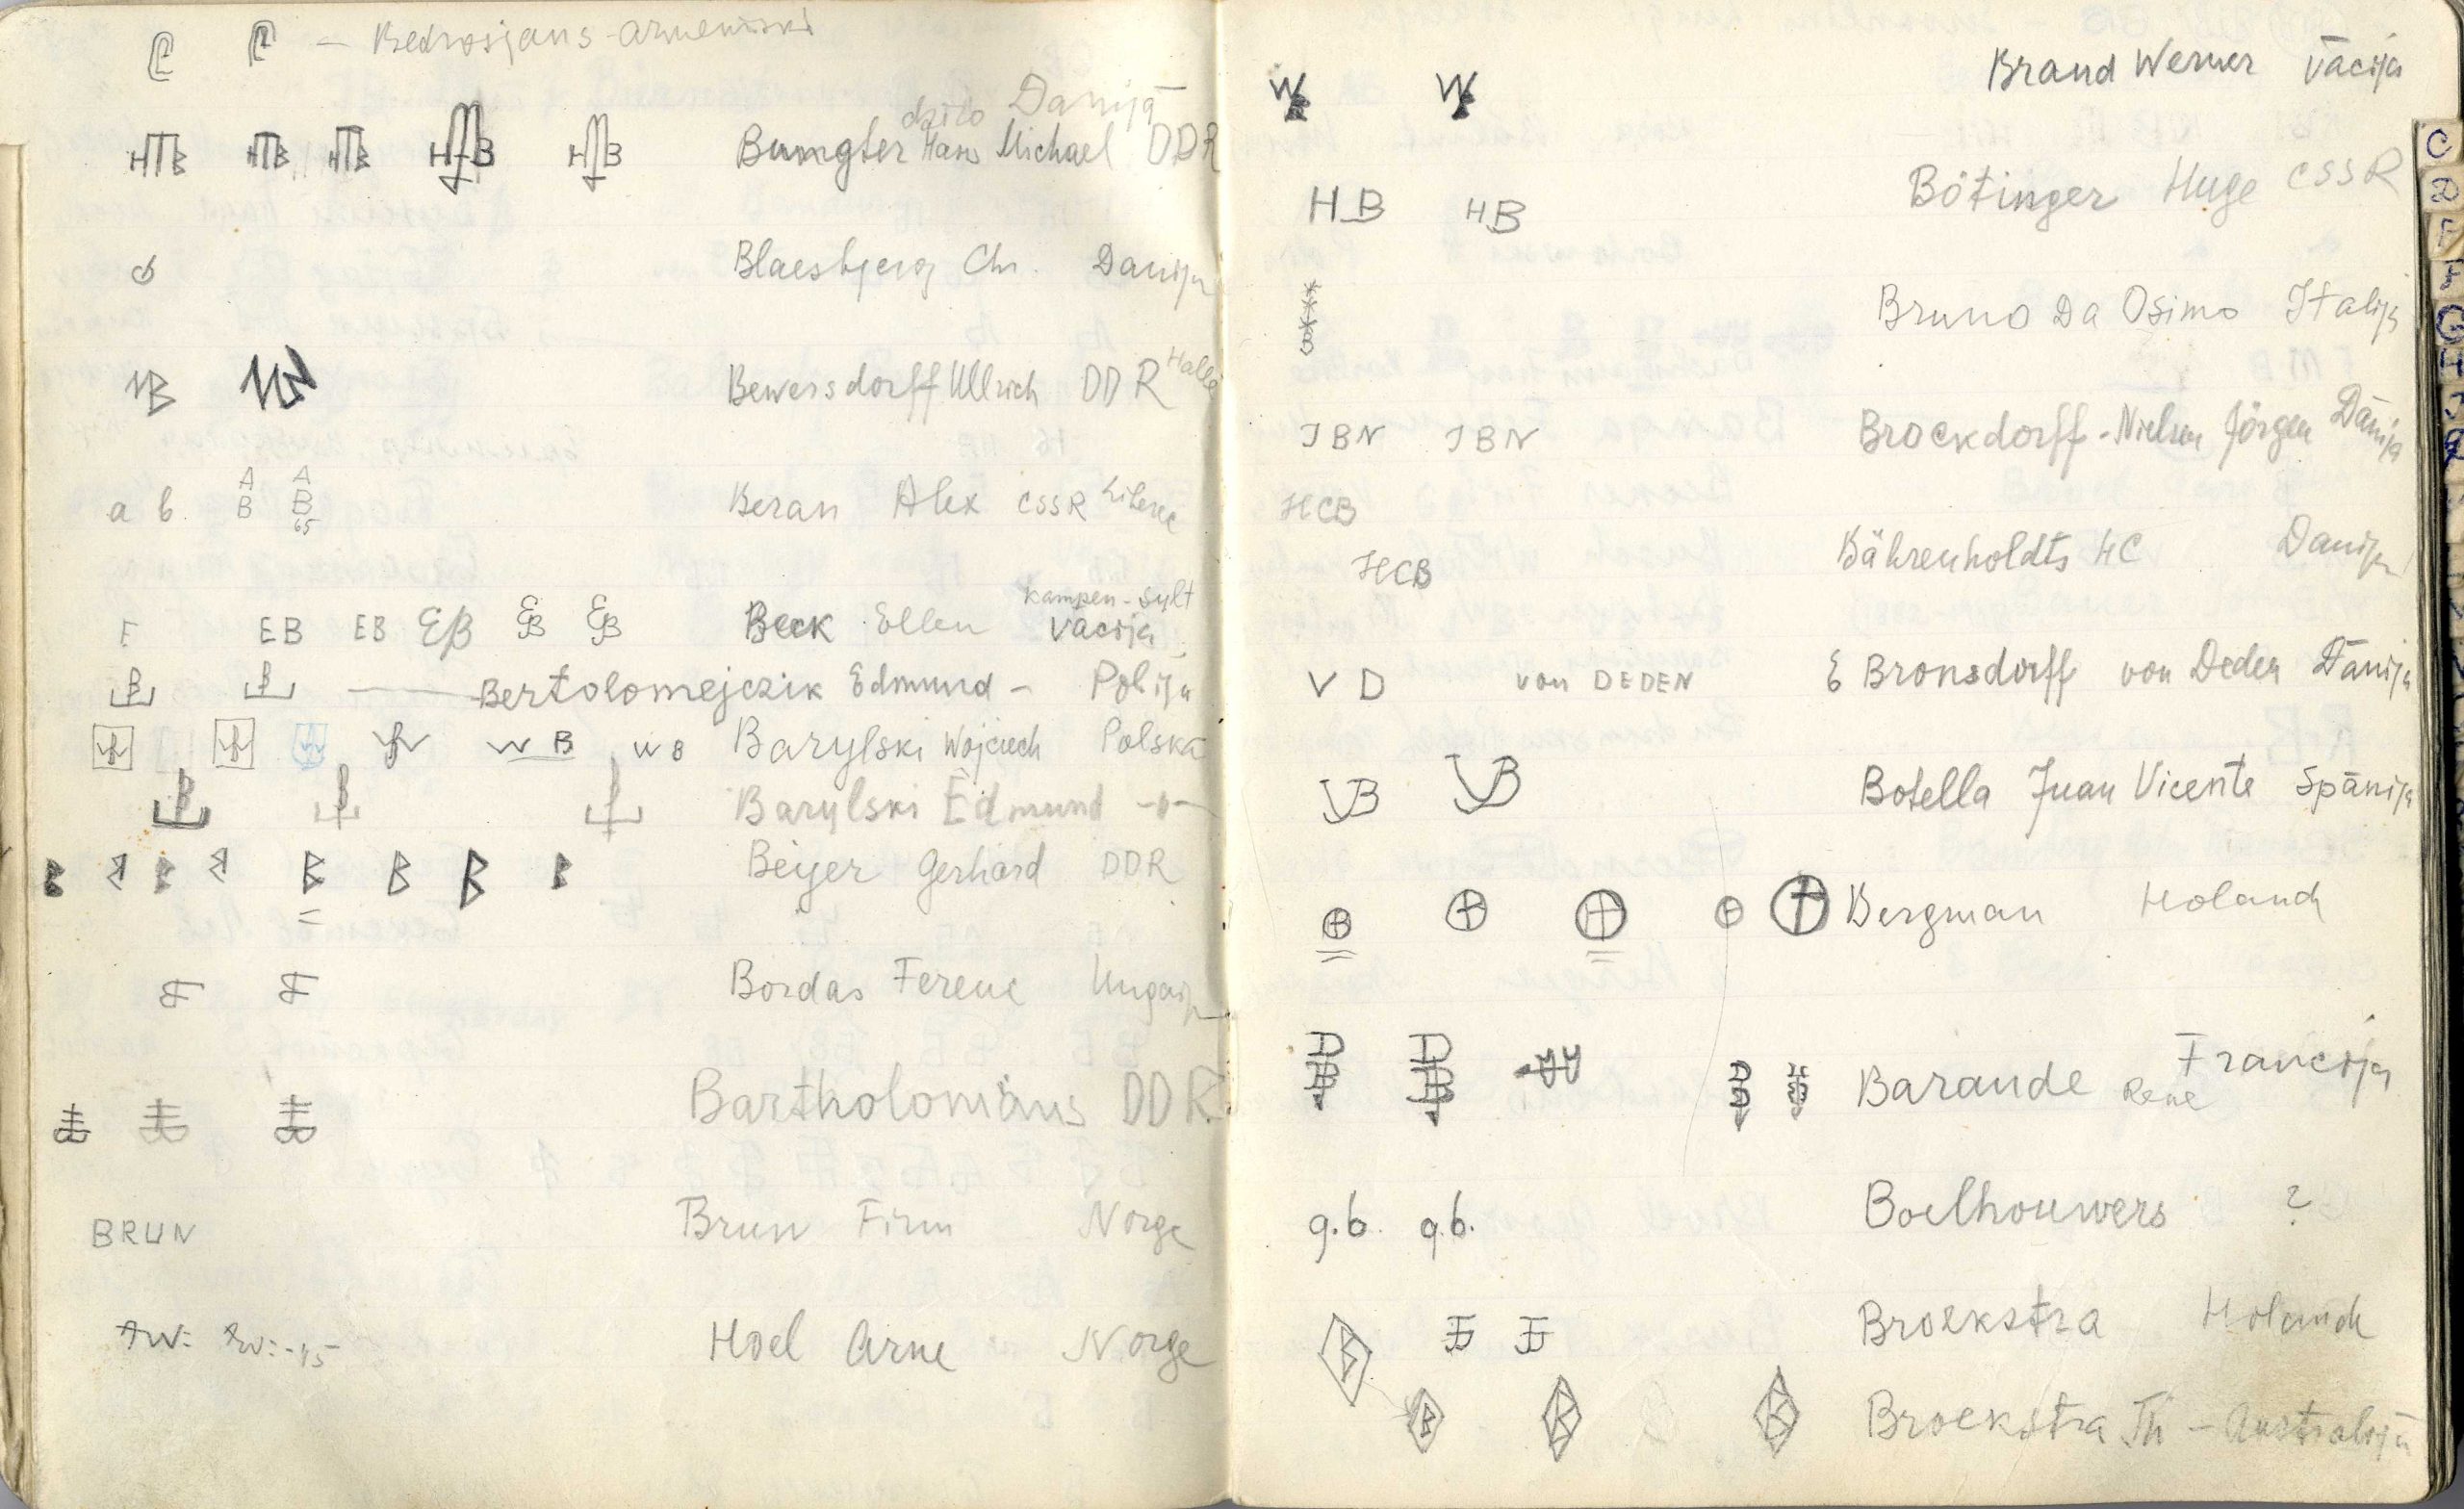 — Bedrosjans-armēniski
HMB HMB HMB HMB HMB dzīvo Danijā
Bumgter Hans Michael DDR
cb Blaesbjerg Chr. Danija
UB Bewersdorff Ullrich DDR Halle
a b. A B A B 65 Beran Alex CSSR Liberec
E EB EB EB EB EB Beck Ellen Kampen-Sylt Vācija
Bertolomejczik Edmund - Polija
W B W B Barylski Wojciech Polska
Barylski Edmund -"-
B B B B B Beyer Gerhard DDR
Bordas Ferenc Ungarija
Bartholomäus DDR
BRUN Brun Firm Norge
AW: AW:-45 Hoel Arne Norge
W W Brand Werner Vācija
HB HB Bötinger Huge CSSR
Bruno Da Osimo Italija
JBN JBN Brockdorff-Nielsen Jörgen Dānija
HCB
HCB Bährenholdts HC Danija
V D von DEDEN E Bronsdorff von Deden Dānija
JVB JVB Botella Juan Vicente Spānija
Bergman Holand
Barande René Francija
g.b. g.b. Boelhouwers ?
B Broekstra Holand
B B B Broekstra Th - Australija
C